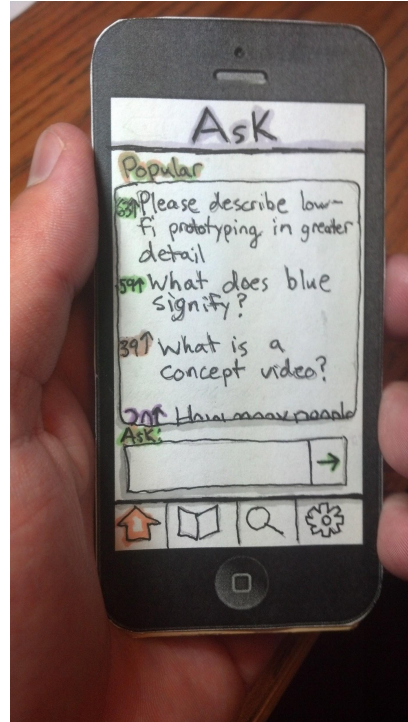 Ask
Popular
63↑ Please describe low-
fi prototyping in greater
detail
59↑ What does blue
signify?
39↑ What is a
concept video?
How many people
Ask: